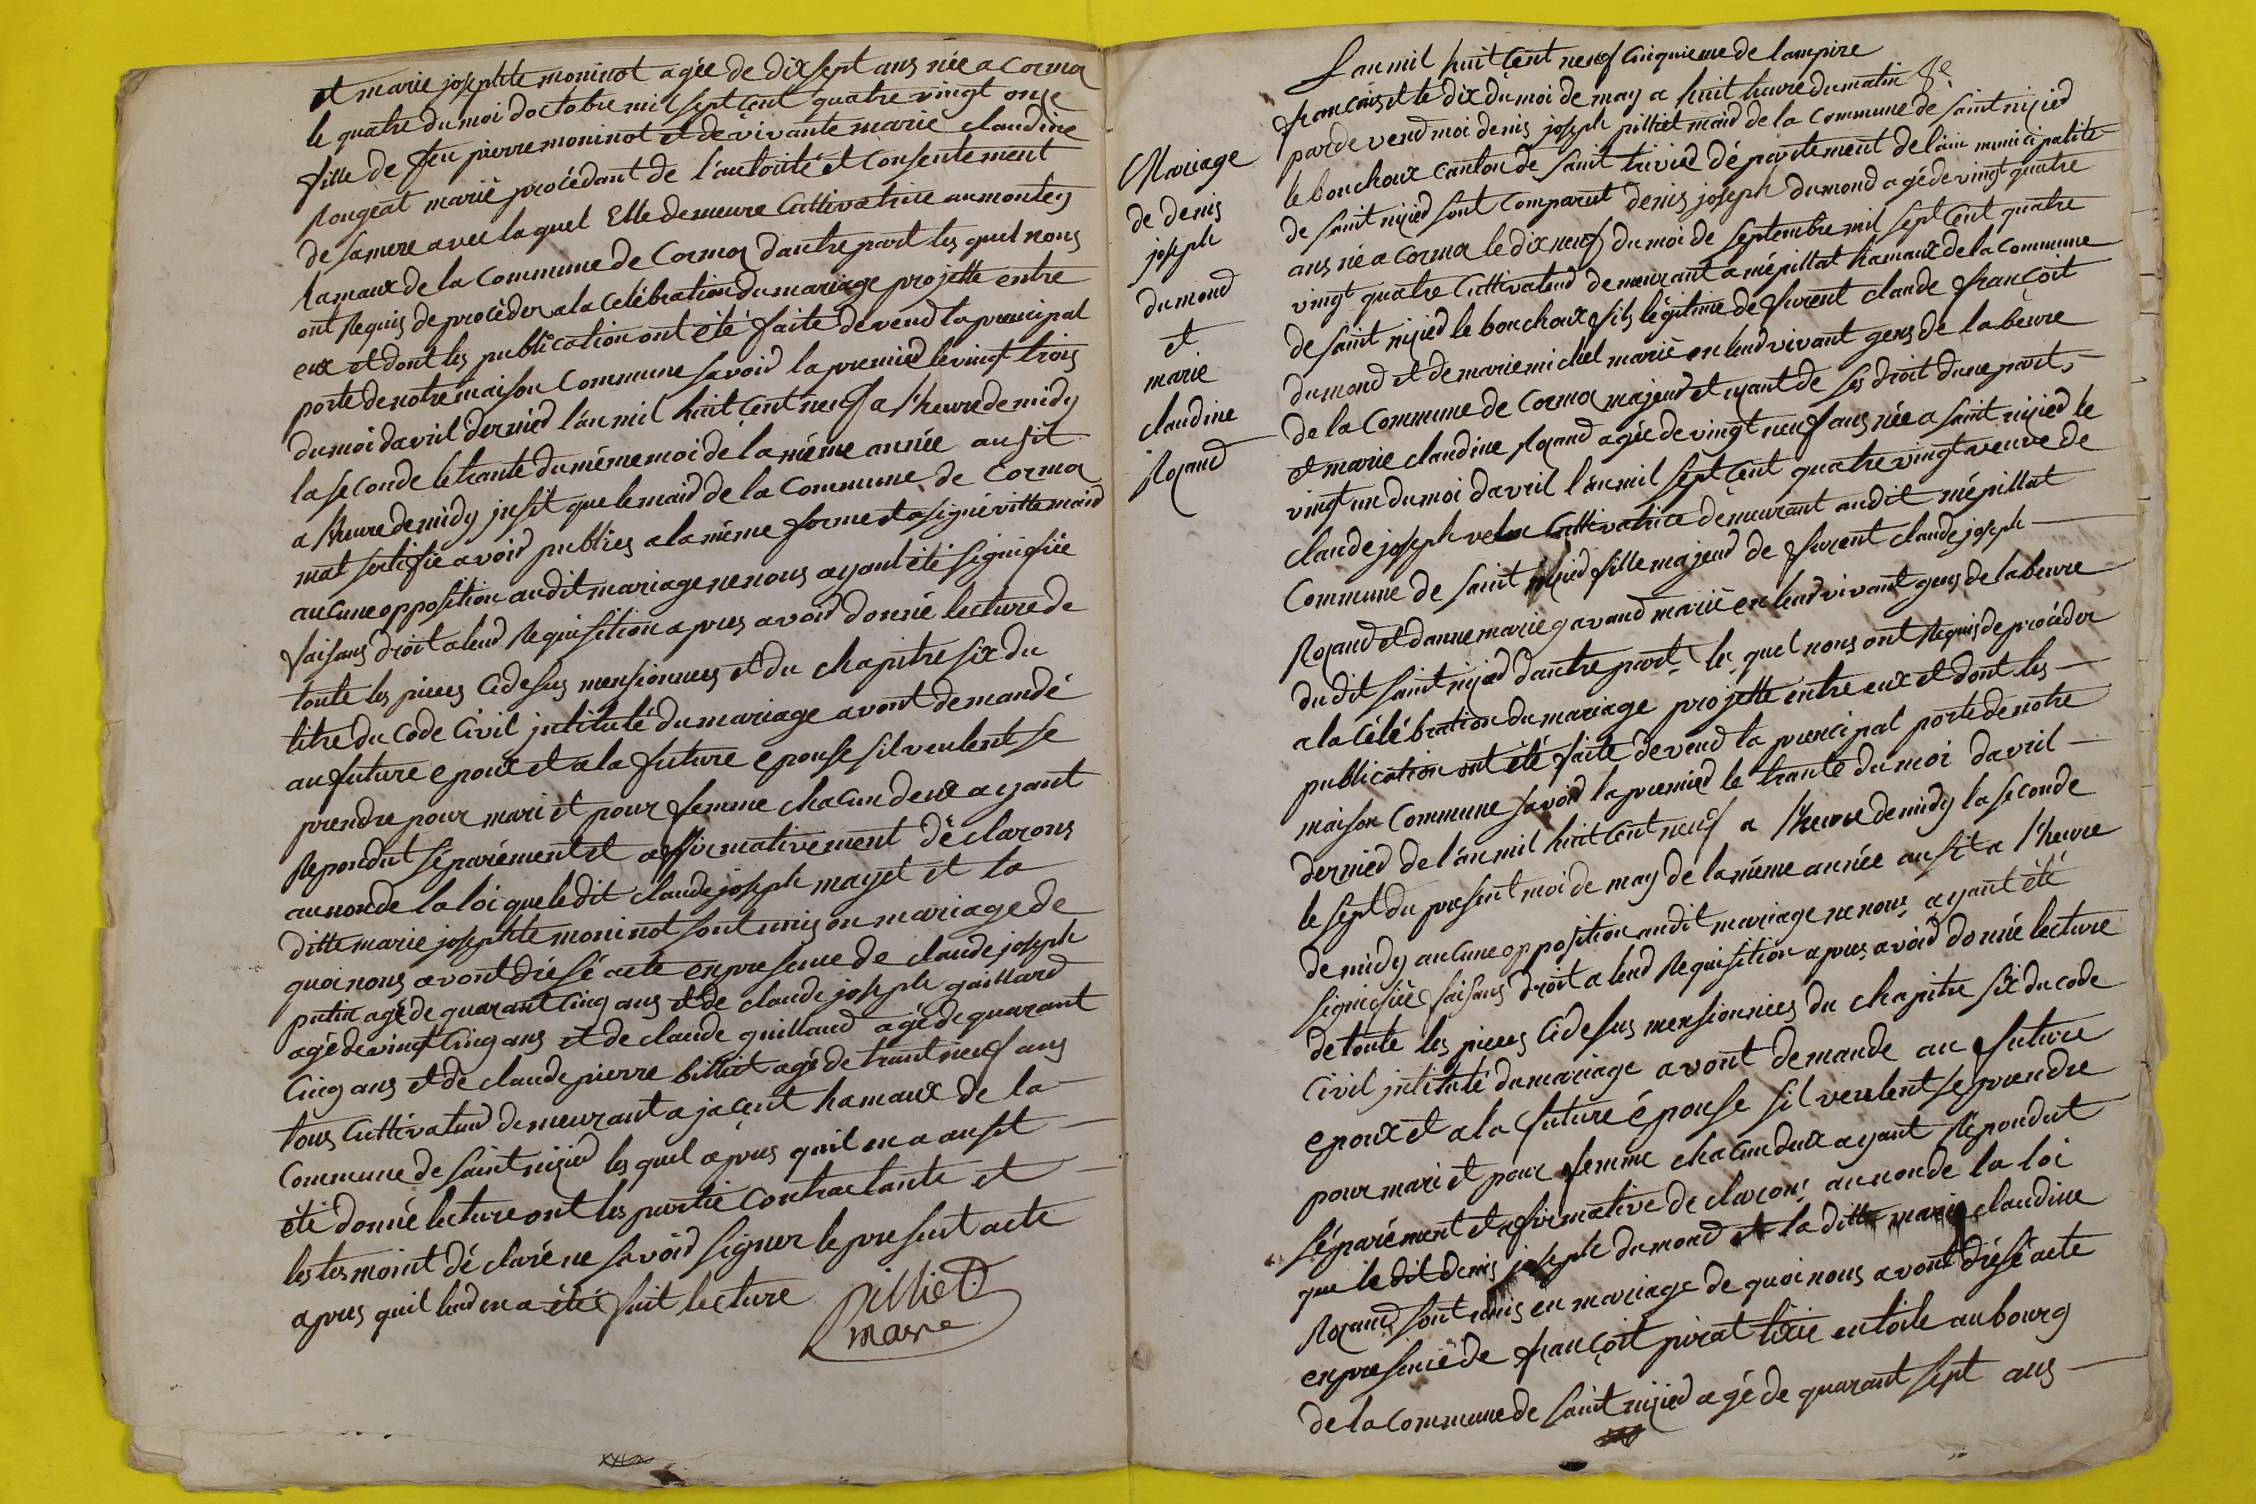 et marie josephte moninot agée de dix sept ans née a Cormoz
le quatre du moi doctobre mil sept Cent quatre vingt onze
fille de feu pierre moninot et de vivante marie claudine
Rougeat marié procédant de l'autorité et Consentement
de sa mere avec laquel Elle demeure Cultivatrice au montey
hamaux de la Commune de Cormoz dautre part les quel nous
ont Requis de procéder a la Celébration du mariage projetté entre
eux et dont les publication ont été faite devend la principal
porte de notre maison Commune savoid la premied le vingt trois
du moi davril dernied l'an mil huit Cent neuf a l'heure de midy
la seconde le trante du méme moi de la méme année ausit
a lheure de midy jnsit que le maid de la Commune de Cormoz
mat sertifié avoid publies a la méme forme et a signé vitte maid
aucune opposition audit mariage ne nous ayant été signifiée
faisans droit a leud Requisition apres avoid donné lecture de
toute les pieces Cidesus mensionnees et du chapitre six du
titre du Code Civil jntitulé du mariage avont demandé
au future epoux et a la future epouse sil veulent se
prendre pour mari et pour femme chacun deux ayant
Repondut séparément et affirmativement déclarons
au nonde la loi que ledit claude joseph mayet et la
ditte marie josephte moninot sont unis en mariage de
quoi nous avont diésé acte en presence de claude joseph
putin agé de quarant Cinq ans et de claude joseph gaillard
agé de vingt Cinq ans et de claude guillaud agé de quarant
Cinq ans et de claude pierre billiet agé de trant neuf ans
tous Cultivateud demeurant a jacent hamaux de la
Commune de saint nizied les quel apres quil en a ausit
été donné lecture ont les partie Contractante et
les tesmoint déclaré ne savoid signer le present acte
apres quil leud en a été fait lecture
Pilliet
maire
Mariage
de denis
joseph
dumond
et
marie
claudine
Rozand
Lan mil huit Cent neuf Cinquieme de lampire
francais et le dix du moi de may a huit heure du matin 8e
pardevend moi denis joseph pilliet maid de la Commune de saint nizied
le bouchoux canton de saint trivied département de lain municipalité
de saint nizied sont comparut denis joseph dumond agé de vingt quatre
ans né a Cormoz le dix neuf du moi de septembre mil sept Cent quatre
vingt quatre Cultivateud demeurant a mépillat hamaux de la Commune
de saint nizied le bouchoux fils légitime de furent claude françoit
dumond et de marie michel marié en leud vivant gens de labeure
de la Commune de Cormoz majeud et uzant de ses droit dune part
et marie claudine Rozand agée de vingt neuf ans née a saint nizied le
vingt un du moi davril l'an mil sept Cent quatre vingt veuve de
claude joseph velon Cultivatrice demeurant audit mépillat
Commune de saint nizied fille majeud de furent claude joseph
Rozand et danne marie gavand marié en leud vivant gens de labeure
du dit saint nizied dautre part les quel nous ont Requis de procéder
a la Célébration du mariage projetté entre eux et dont les
publication ont été faite devend la principal porte de notre
maison Commune savoid la premied le trante du moi davril
dernied de l'an mil huit Cent neuf a l'heure de midy la seconde
le sept du present moi de may de la méme année ausit a l'heure
de midy aucune opposition audit mariage ne nous ayant été
signifiée faisans droit a leud Requisition apres avoid donné lecture
de toute les pieces Cidesus mensionnées du chapitre six du code
Civil jntitulé du mariage avont demande au future
epoux et a la future épouse sil veulent se prendre
pour mari et pour femme chacun deux ayant Répondut
séparément et afirmative declarons au nonde la loi
que le dit denis joseph dumond et la ditte marie claudine
Rozand sont unis en mariage de quoi nous avont diésé acte
en presence de françoit pirat tixie en toile au bourg
de la Commune de saint nizied agé de quarant sept ans